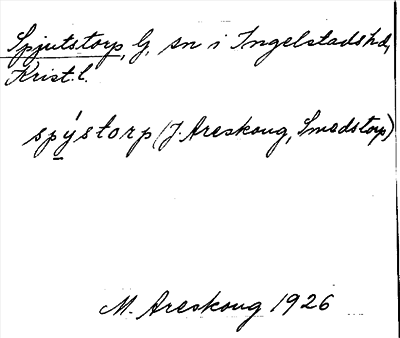 Spjutstorp, G. sn i Ingelstads hd,
Krist. l.
spýstorp (J. Areskoug, Smedstorp)
M. Areskoug 1926